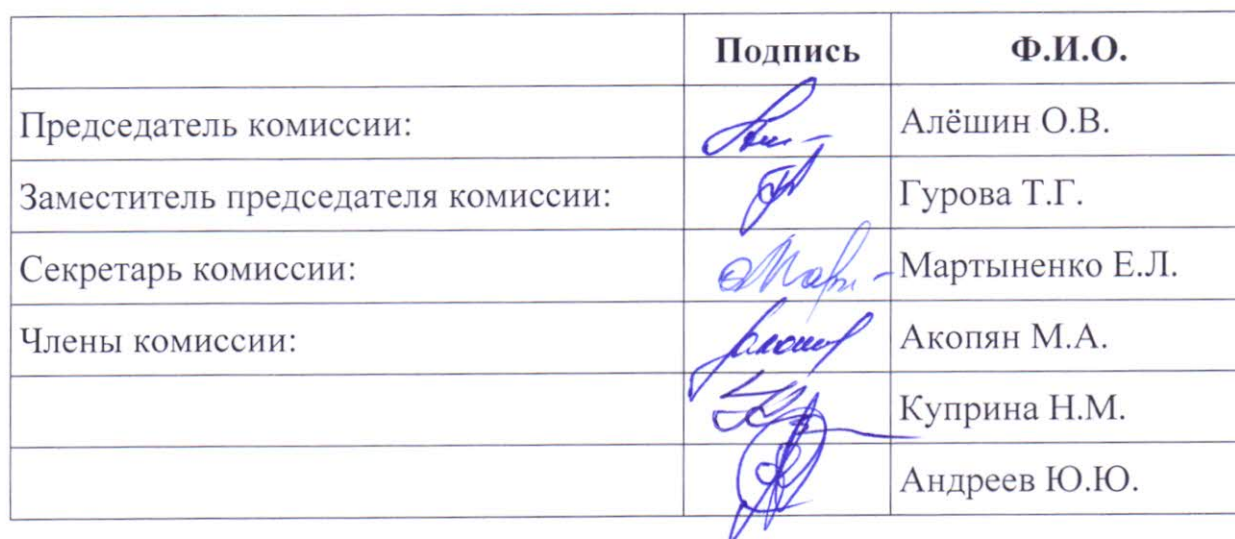 Подпись Ф.И.О.
Председатель комиссии: Алёшин О.В.
Заместитель председателя комиссии: Гурова Т.Г.
Секретарь комиссии: Мартыненко Е.Л.
Члены комиссии: Акопян М.А.
Куприна Н.М.
Андреев Ю.Ю.